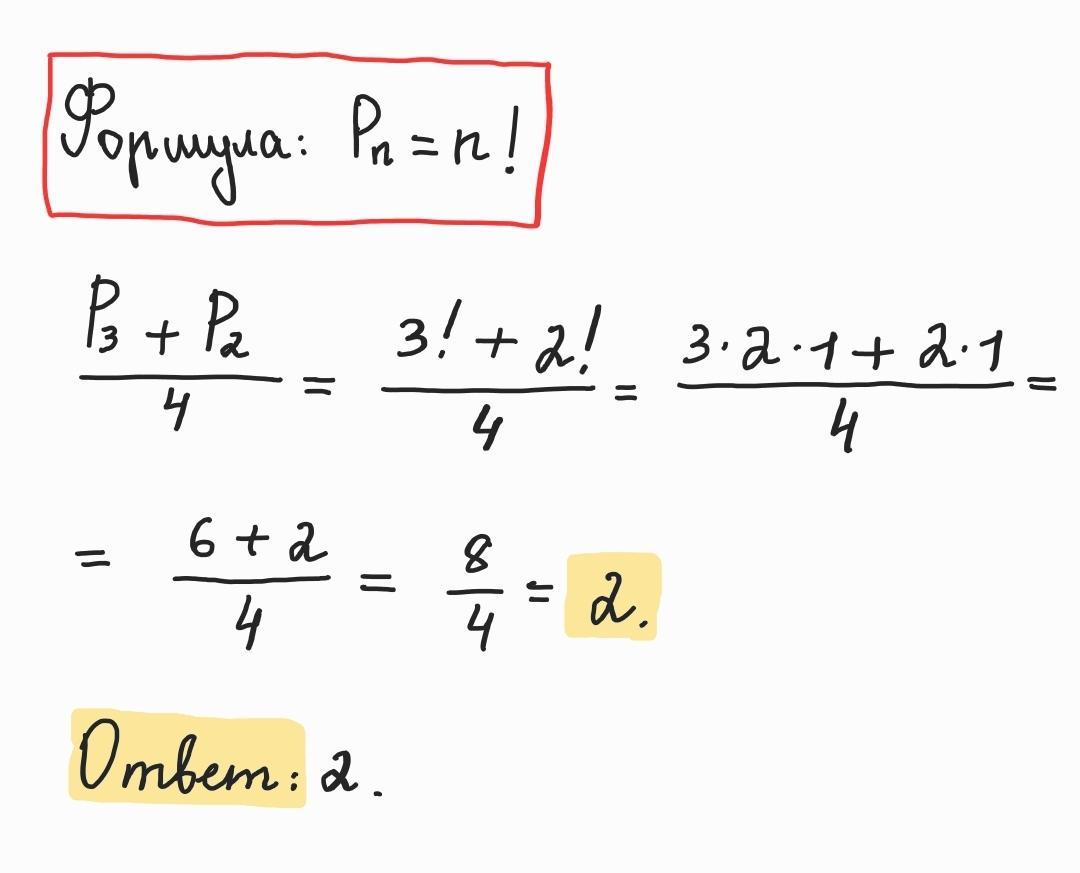 Формула: Pₙ = n!
(P₃ + P₂)/4 = (3! + 2!)/4 = (3·2·1 + 2·1)/4 =
= (6 + 2)/4 = 8/4 = 2.
Ответ: 2.